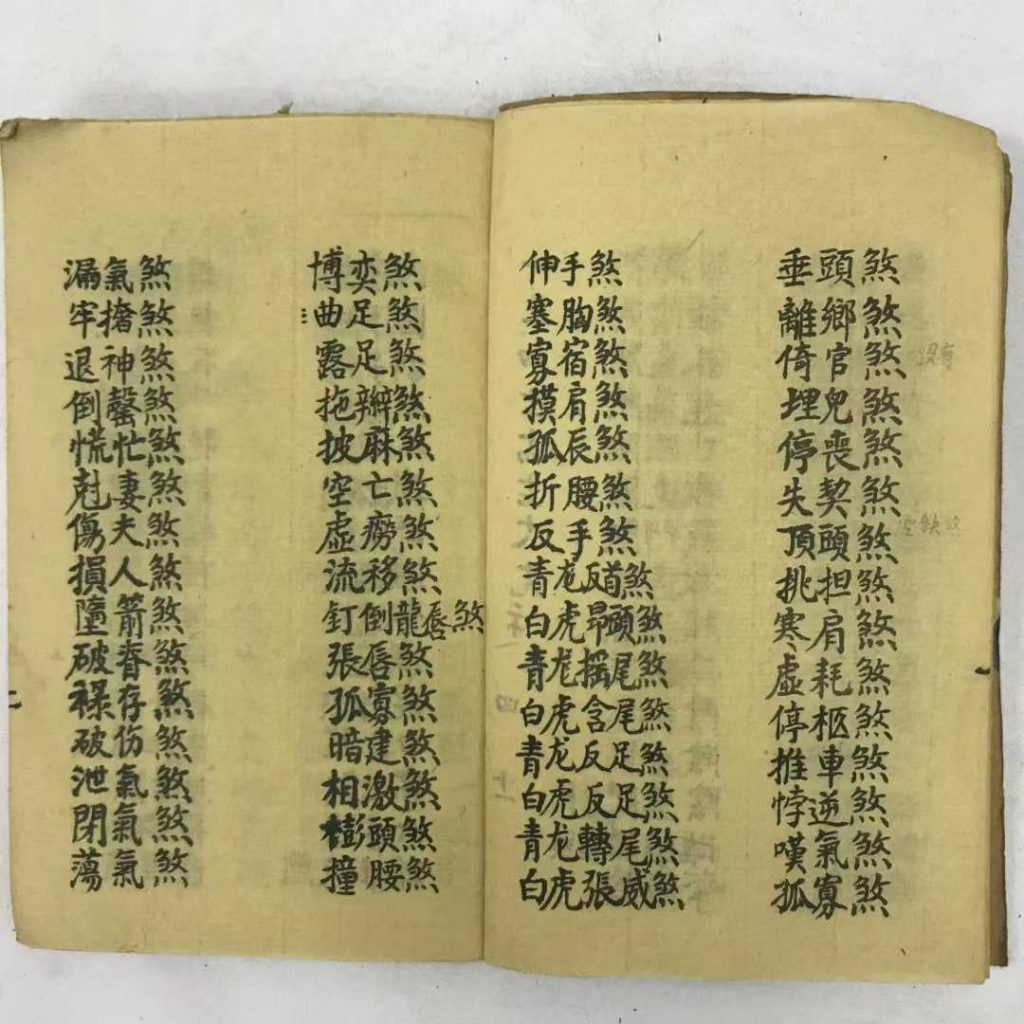 垂頭煞
離鄉煞
倚官煞
没有
埋兒煞
停喪煞
失契煞
頂頭煞
挑担煞
寒肩煞
虛耗煞
停柩煞
推車煞
悖逆煞
嘆氣煞
孤寡煞
伸手煞
塞胸煞
寡宿煞
摸肩煞
孤辰煞
折腰煞
反手煞
青龙反首煞
白虎昂頭煞
青龙摇尾煞
白虎含尾煞
青龙反足煞
白虎反足煞
青龙轉尾煞
白虎張威煞
博奕煞
曲足煞
露足煞
拖辮煞
披麻煞
空亡煞
虛癆煞
流移煞
釘倒龍唇煞
張唇煞
孤寡煞
暗建煞
相激煞
頭煞
撞腰煞
漏氣煞
牢擔煞
退神煞
倒罄煞
慌忙煞
尅妻煞
傷夫煞
損人煞
墮箭煞
破眷煞
禄存煞
破伤煞
泄氣煞
閉氣煞
蕩氣煞